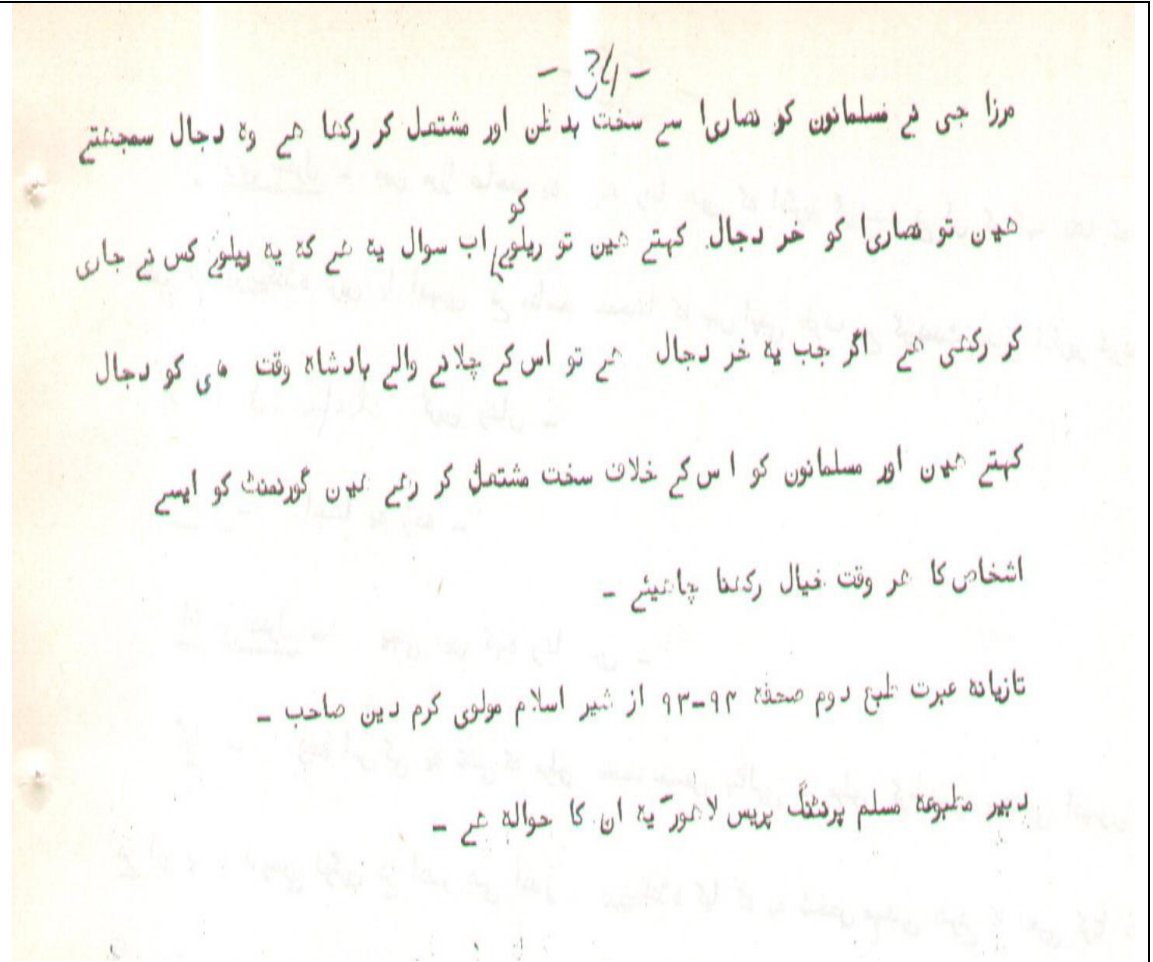 - 34 -
مرزا جی نے مسلمانون کو نصاریٰ سے سخت بد ظن اور مشتعل کر رکھا ھے وہ دجال سمجھتے
ھین تو نصاریٰ کو خر دجال کہتے ھین تو ریلوے کو اب سوال یہ ھے کہ یہ ریلوے کس نے جاری
کر رکھی ھے اگر جب یہ خر دجال ھے تو اس کے چلانے والے بادشاہ وقت ھی کو دجال
کہتے ھین اور مسلمانون کو اس کے خلاف سخت مشتعل کر رھے ھین گورنمنٹ کو ایسے
اشخاص کا ھر وقت خیال رکھنا چاھیئے -
تازیانہ عبرت طبع دوم صحفہ ۹۴-۹۳ از شیر اسلام مولوی کرم دین صاحب -
دبیر مطبوعہ مسلم پرنٹنگ پریس لاھور" یہ ان کا حوالہ ھے -